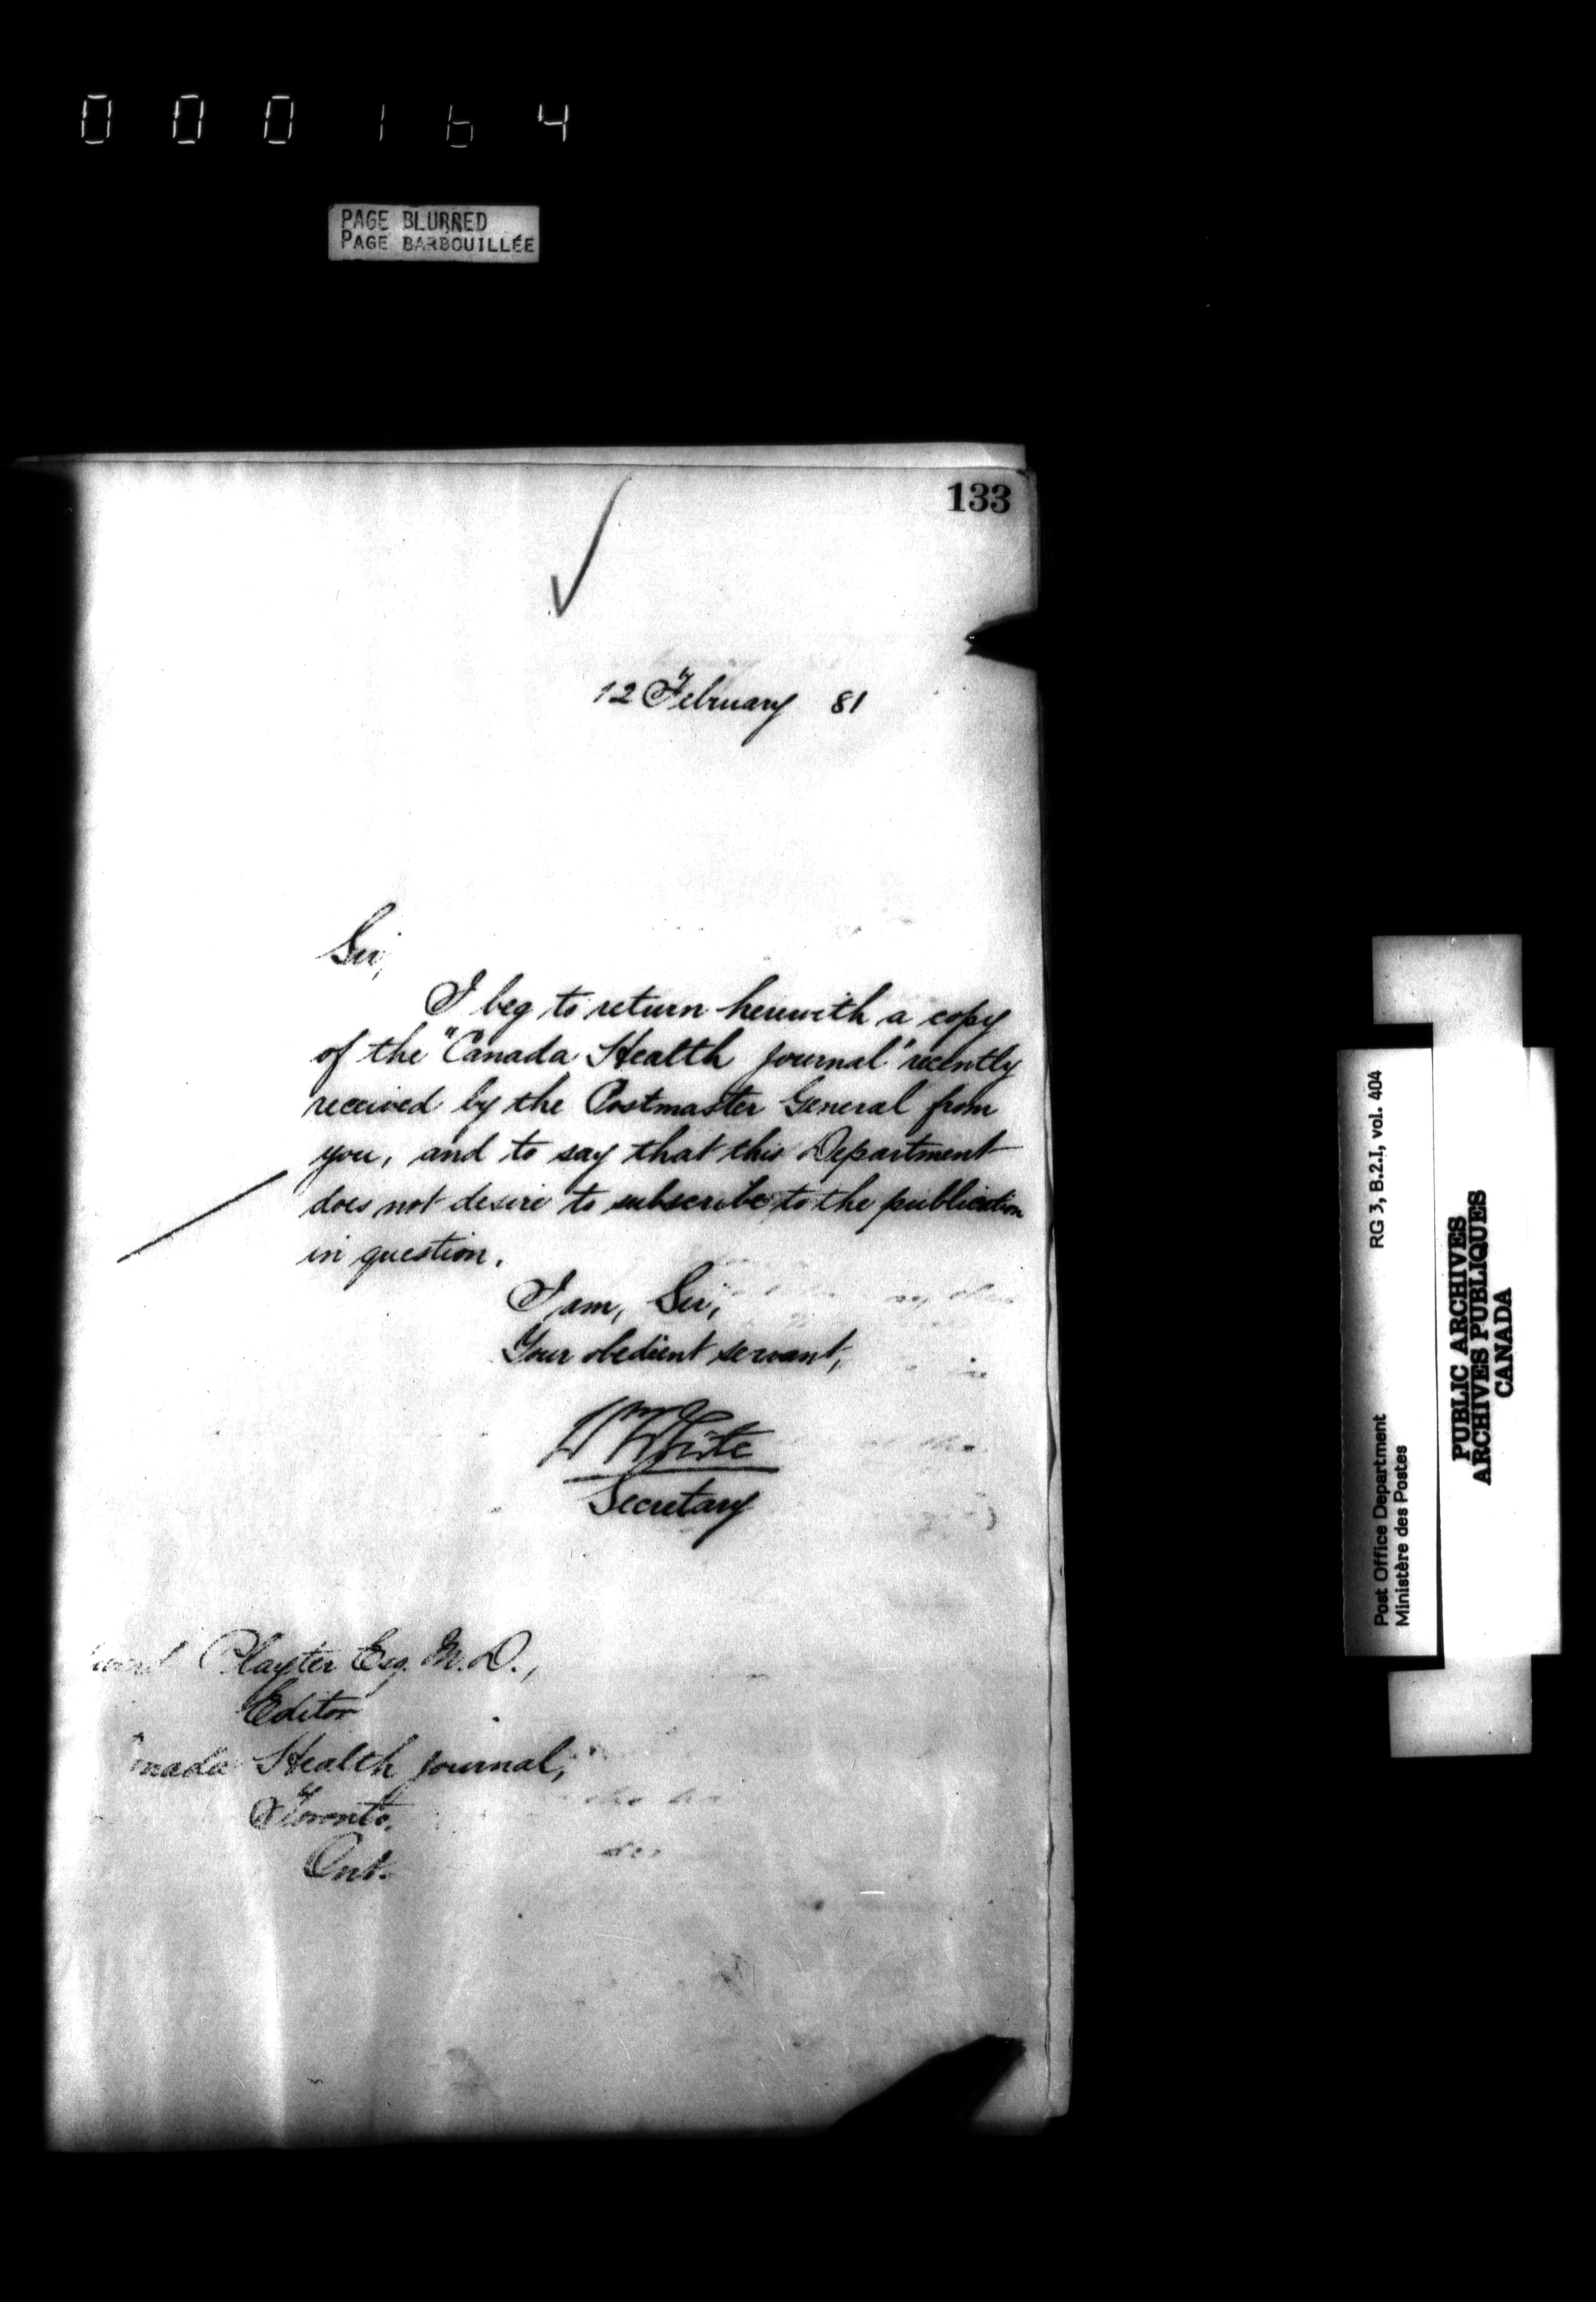 000164
PAGE BLURRED
PAGE BARBOUILLÉE
133
12 February 81
Sir,
I beg to return herewith a copy
of the "Canada Health Journal" recently
received by the Postmaster General from
you, and to say that this Department
does not desire to subscribe to the publication
in question.
I am, Sir,
Your obedient servant,
Wm White
Secretary
Playter Esq. M.D.,
Editor
nada Health Journal,
Toronto.
Ont.
RG 3, B.2.I, vol. 404
Post Office Department
Ministère des Postes
PUBLIC ARCHIVES
ARCHIVES PUBLIQUES
CANADA